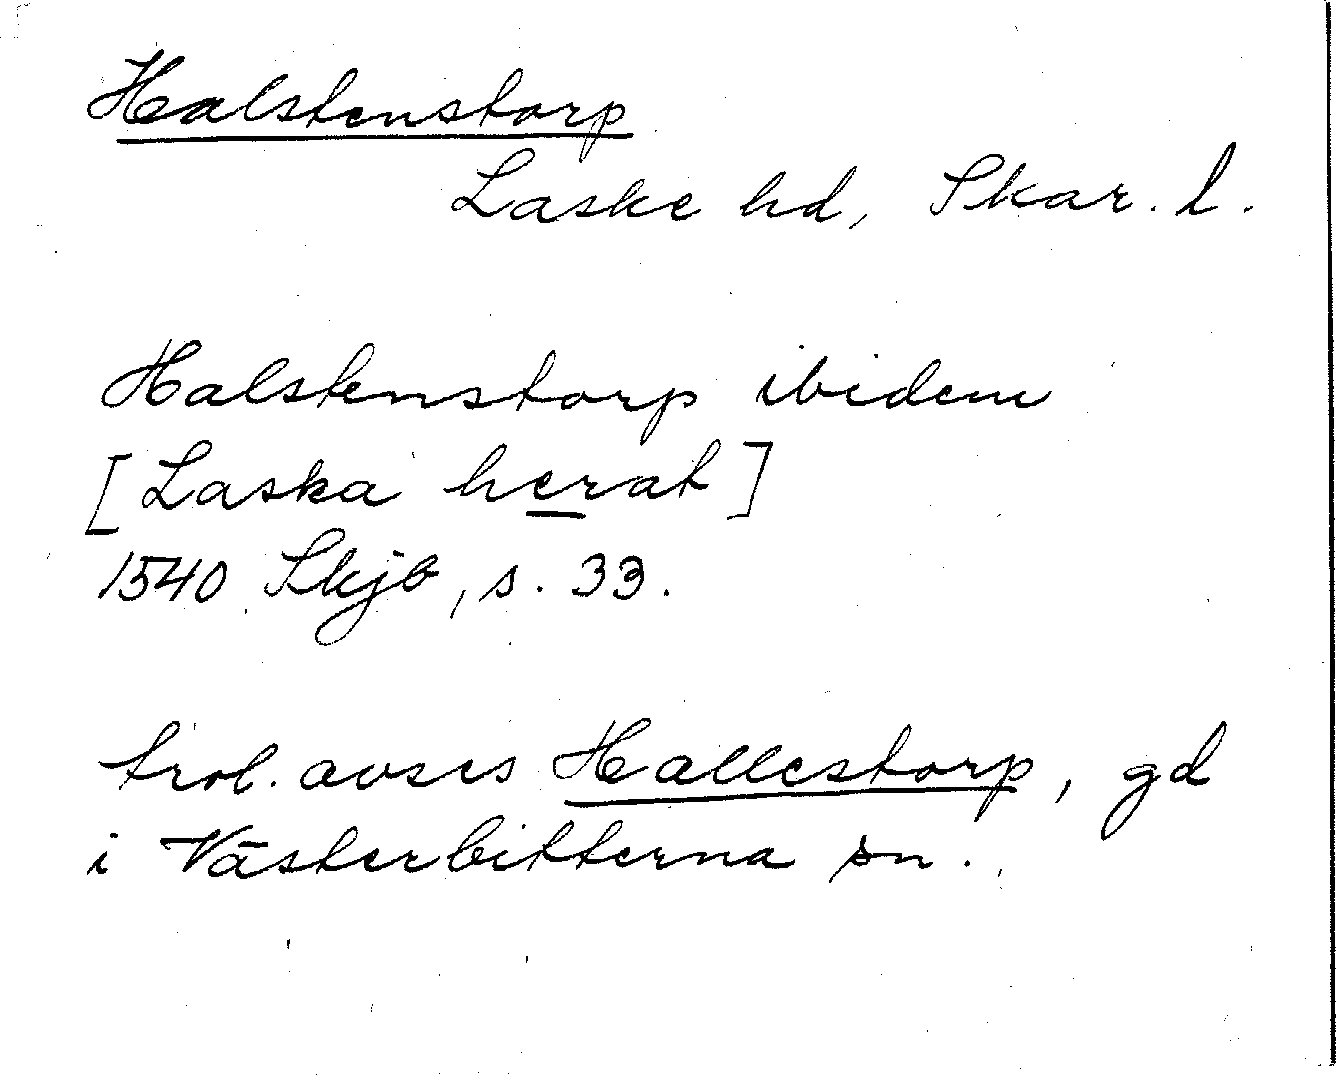 Halstenstorp
Laske hd, Skar. l.
Halstenstorp ibidem
[Laska herat]
1540 Skjb, s. 33.
trol. avses Hallestorp, gd
i Västerbitterna sn.